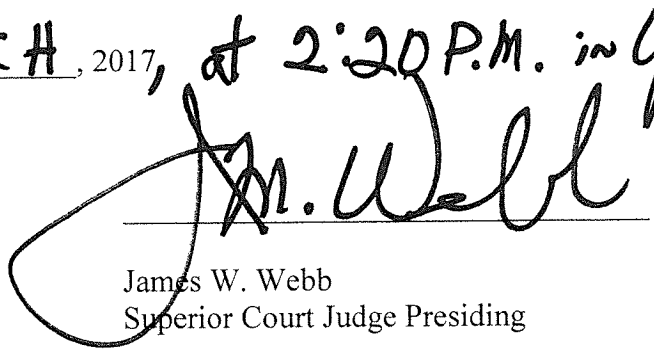 H, 2017, at 2:20 P.M. in
J M. Webb
James W. Webb
Superior Court Judge Presiding